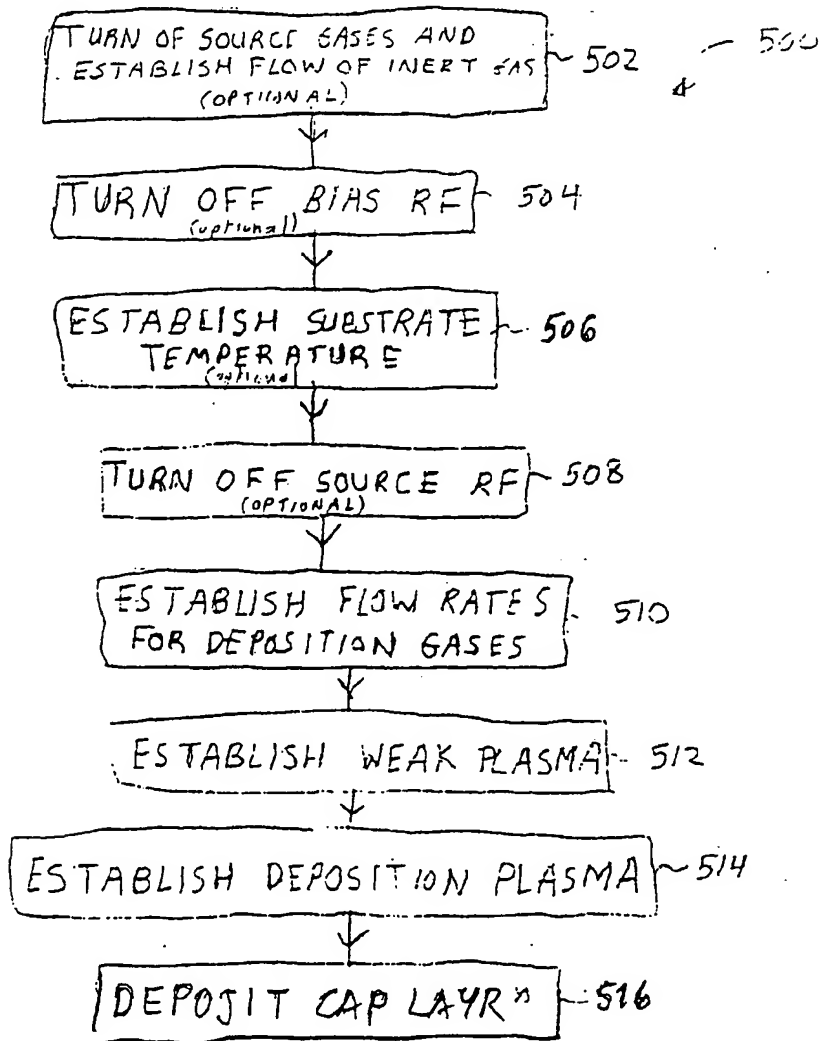 TURN OF SOURCE GASES AND
ESTABLISH FLOW OF INERT GAS
(OPTIONAL)
502
500
TURN OFF BIAS RF
(optional)
504
ESTABLISH SUBSTRATE
TEMPERATURE
(optional
506
TURN OFF SOURCE RF
(OPTIONAL)
508
ESTABLISH FLOW RATES
FOR DEPOSITION GASES
510
ESTABLISH WEAK PLASMA
512
ESTABLISH DEPOSITION PLASMA
514
DEPOSIT CAP LAYR
516